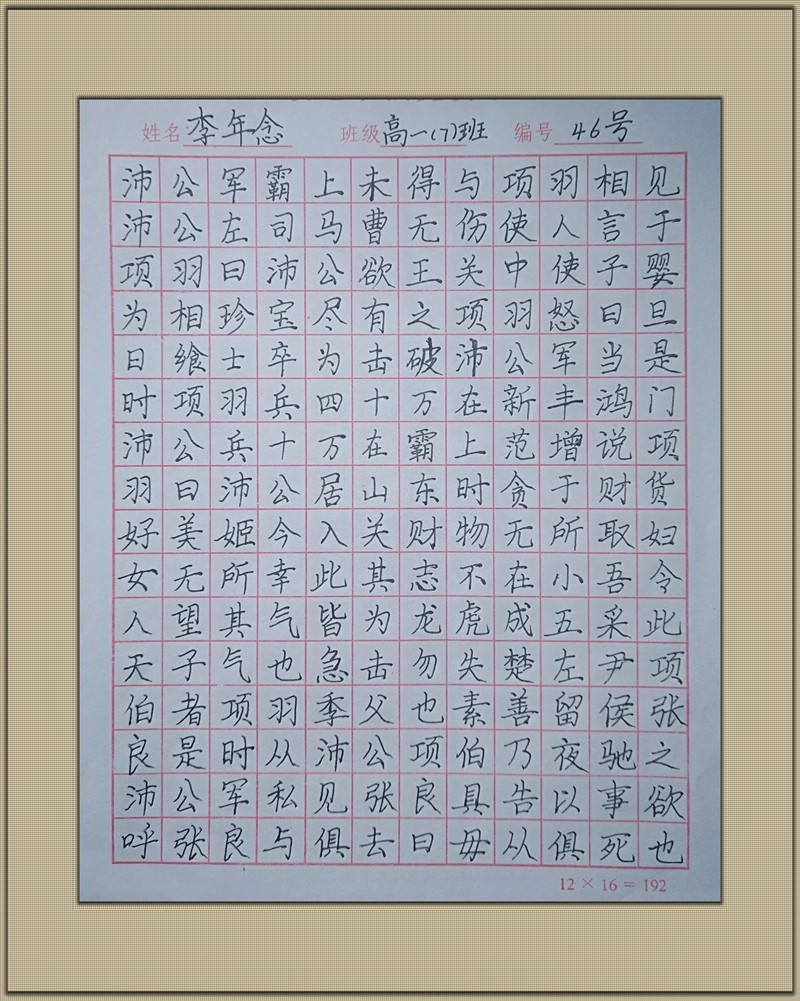 姓名 李年念 班级 高一(7)班 编号 46号
沛公军霸上未得与项羽相见
沛公左司马曹无伤使人言于
项羽曰沛公欲王关中使子婴
为相珍宝尽有之项羽怒曰旦
日飨士卒为击破沛公军当是
时项羽兵四十万在新丰鸿门
沛公兵十万在霸上范增说项
羽曰沛公居山东时贪于财货
好美姬今入关财物无所取妇
女无所幸此其志不在小吾令
人望其气皆为龙虎成五采此
天子气也急击勿失楚左尹项
伯者项羽季父也素善留侯张
良是时从沛公项伯乃夜驰之
沛公军私见张良具告以事欲
呼张良与俱去曰毋从俱死也
12 × 16 = 192